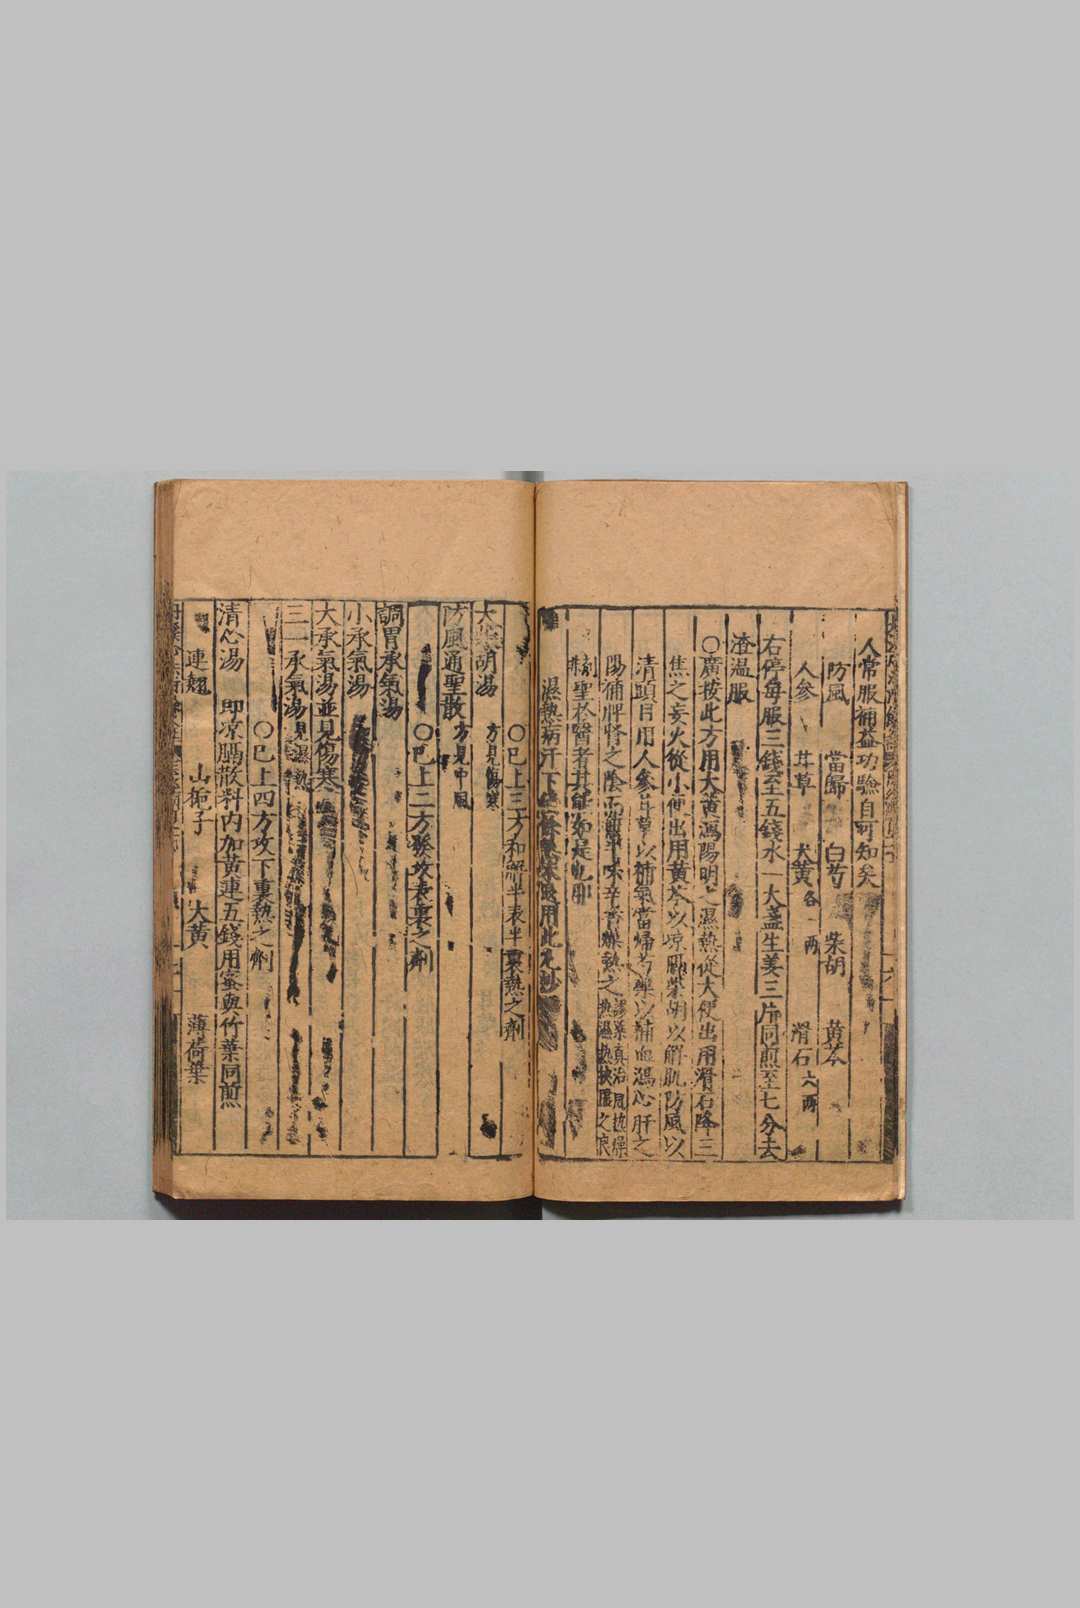 人常服補益功驗自可知矣
防風 當歸 白芍 柴胡 黃芩
人參 甘草 大黃各一兩 滑石六兩
右停每服三錢至五錢水一大盞生姜三片同煎至七分去
渣温服
○廣按此方用大黃瀉陽明之濕熱從大便出用滑石降三
焦之妄火從小便出用黃芩以凉膈柴胡以解肌防風以
清頭目用人參甘草以補氣當歸芍藥以補血瀉心肝之
陽補脾腎之陰而無辛味辛香燥熱之
劑聖於醫者其能如是也耶
濕熱病汗下後
○已上三方和解半表半裏熱之劑
大柴胡湯 方見傷寒
防風通聖散 方見中風
○已上二方發攻表裏之劑
調胃承氣湯
小承氣湯
大承氣湯並見傷寒
三一承氣湯見濕熱
○已上四方攻下裏熱之劑
清心湯 即凉膈散料内加黃連五錢用蜜與竹葉同煎
連翹 山梔子 大黃 薄荷葉